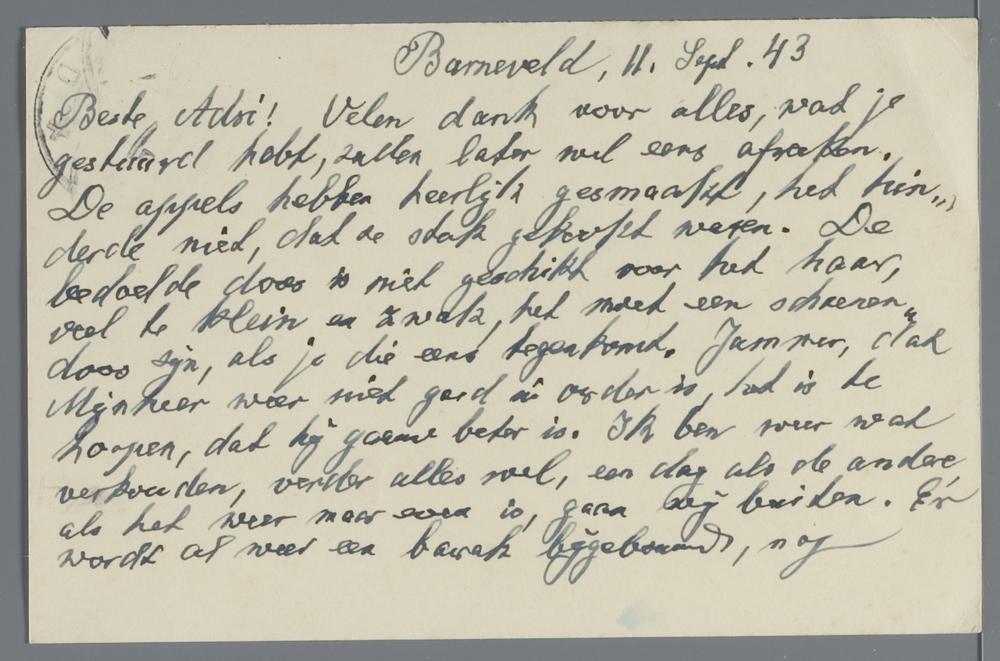 Barneveld, 11. Sept. 43
Beste Adri! Velen dank voor alles, wat je
gestuurd hebt, zullen later wel eens afreken.
De appels hebben heerlijk gesmaakt, het hin„
derde niet, dat ze stuk gekookt waren. De
bedoelde doos is niet geschikt voor het haar,
veel te klein en zwak, het moet een schoenen„
doos zijn, als je die eens tegenkomt. Jammer, dat
Mijnheer weer niet goed in order is, het is te
hoopen, dat hij gauw beter is. Ik ben weer wat
verkouden, verder alles wel, een dag als de andere
als het weer maar even is, gaan wij buiten. Er
wordt al weer een barak bijgebouwd, nog